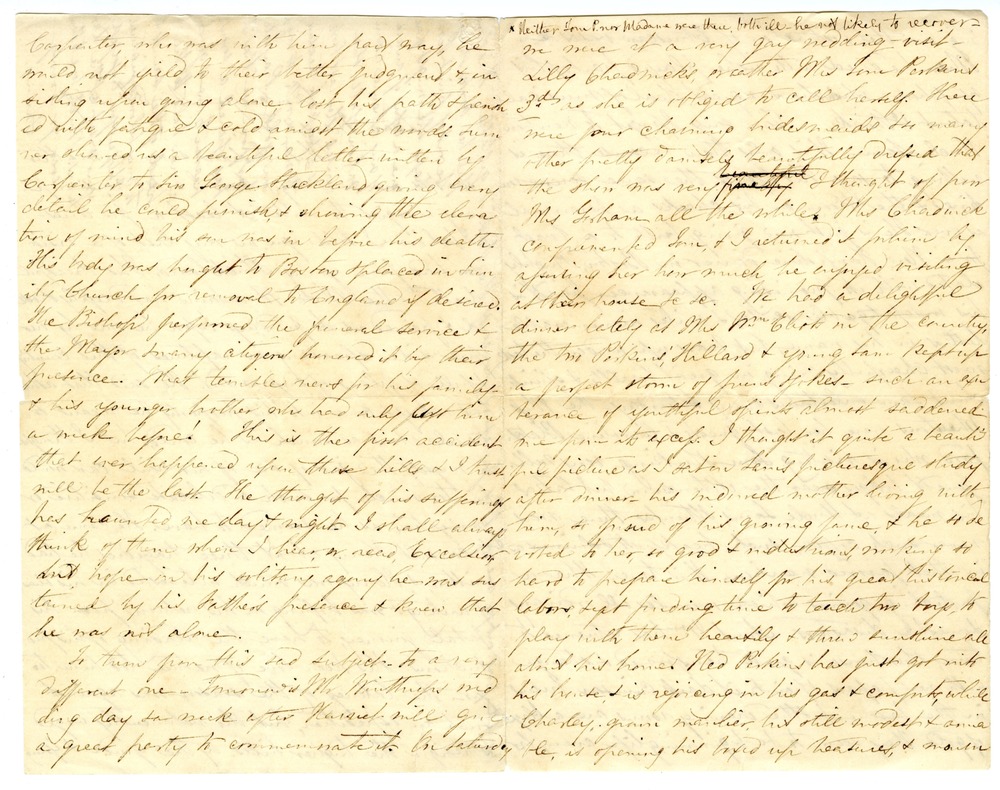 Carpenter, who was with him part way, he
would not yield to their better judgment & in
sisting upon going alone lost his path & perish
ed with fatigue & cold amidst the woods. Sum
ner showed us a beautiful letter written by
Carpenter to Sir George Strickland giving every
detail he could furnish, & showing the eleva
tion of mind his son was in before his death.
His body was brought to Boston & placed in Trin
ity Church for removal to England if desired.
The Bishop performed the funeral service &
the Mayor & many citizens honored it by their
presence. What terrible news for his family
& his younger brother who had only left him
a week before! This is the first accident
that ever happened upon those hills & I trust
will be the last. The thought of his sufferings
has haunted me day & night. I shall always
think of them when I hear, or read Excelsior,
but hope in his solitary agony he was sus
tained by his Father's presence & knew that
he was not alone.
To turn from this sad subject to a very
different one - Tomorrow is Mr Winthrop's wed
ding day & a week after will give
a great party to commemorate it. On Saturday,
x Neither Tom P. nor Madame were there, both ill - he not likely to recover =
we were at a very gay wedding-visit -
Lilly Chadwick's, or rather Mrs Tom Perkins
3d, as she is obliged to call herself. There
were four charming bridesmaids & so many
other pretty damsels beautifully dressed that
the show was very fine x I thought of poor
Mrs Gorham all the while. Mrs Chadwick
complimented Tom, & I returned it for him by
assuring her how much he enjoyed visiting
at their house &c &c. We had a delightful
dinner lately at Mrs Wm Eliot's in the country,
the two Perkins', Hillard & young Sam kept up
a perfect storm of puns & jokes - such an exu
berance of youthful spirits almost saddened
me from its excess. I thought it quite a beauti
ful picture as I sat in Sam's picturesque study
after dinner - his widowed mother living with
him, so proud of his growing fame, & he so de
voted to her, so good & industrious, working so
hard to prepare himself for his great historical
labors, & yet finding time to teach two boys, to
play with them heartily & throw sunshine all
about his home. Ned Perkins has just got into
his house, & is rejoicing in his gas & comforts, while
Charley, grown manlier, but still modest & amia
ble, is opening his boxed up treasures, & mourn